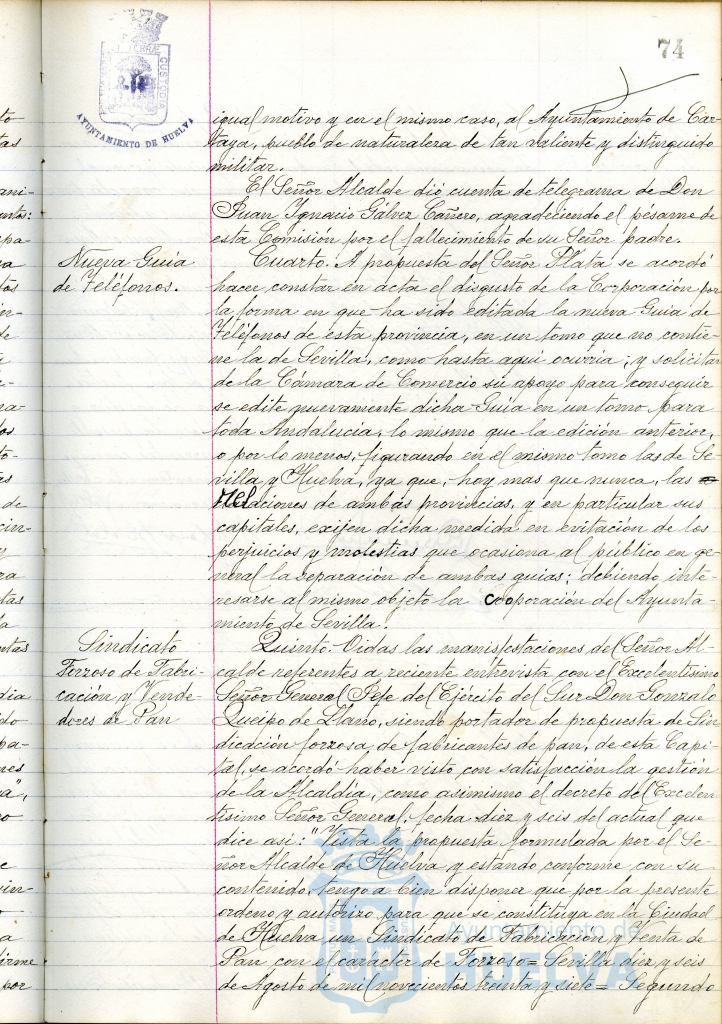 74
AYUNTAMIENTO DE HUELVA
igual motivo y en el mismo caso, al Ayuntamiento de Car-
taya, pueblo de naturaleza de tan valiente y distinguido
militar.
El Señor Alcalde dió cuenta de telegrama de Don
Juan Ignacio Gálvez Cañero, agradeciendo el pésame de
esta Comisión por el fallecimiento de su Señor padre.
Nueva Guía
de Teléfonos.
Cuarto. A propuesta del Señor Plata se acordó
hacer constar en acta el disgusto de la Corporación por
la forma en que ha sido editada la nueva Guia de
Teléfonos de esta provincia, en un tomo que no contie-
ne la de Sevilla, como hasta aquí ocurria; y solicitar
de la Cámara de Comercio su apoyo para conseguir
se edite nuevamente dicha Guía en un tomo para
toda Andalucia, lo mismo que la edición anterior,
o por lo menos, figurando en el mismo tomo las de Se-
villa y Huelva, ya que, hoy mas que nunca, las
relaciones de ambas provincias, y en particular sus
capitales, exijen dicha medida en evitación de los
perjuicios y molestias que ocasiona al público en ge-
neral la separación de ambas guias; debiendo inte-
resarse al mismo objeto la cooperación del Ayunta-
miento de Sevilla.
Sindicato
Forzoso de Fabri-
cación y Vende-
dores de Pan
Quinto.- Oidas las manifestaciones del Señor Al-
calde referentes a reciente entrevista con el Excelentísimo
Señor General Jefe del Ejército del Sur Don Gonzalo
Queipo de Llano, siendo portador de propuesta de Sin
dicación forzosa de fabricantes de pan, de esta Capi-
tal, se acordó haber visto con satisfacción la gestión
de la Alcaldía, como asimismo el decreto del Excelen-
tísimo Señor General, fecha diez y seis del actual que
dice así: "Vista la propuesta formulada por el Se-
ñor Alcalde de Huelva y estando conforme con su
contenido, tengo a bien disponer que por la presente
ordeno y autorizo para que se constituya en la Ciudad
de Huelva un Sindicato de Fabricación y Venta de
Pan con el carácter de Forzoso= Sevilla diez y seis
de Agosto de mil novecientos treinta y siete= Segundo
Ayuntamiento de
HUELVA